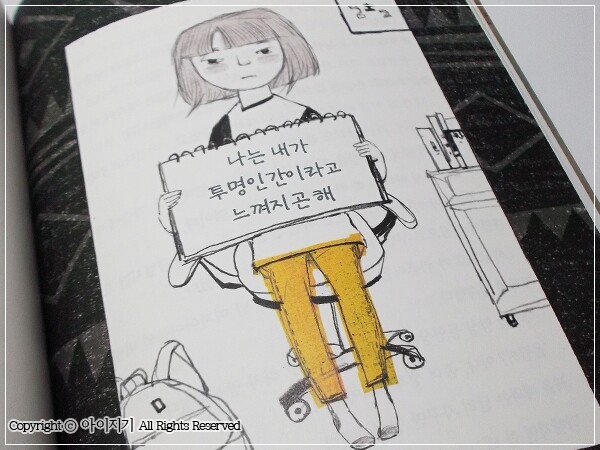 나는 내가
투명인간이라고
느껴지곤 해
Copyright © 아이지기 All Rights Reserved